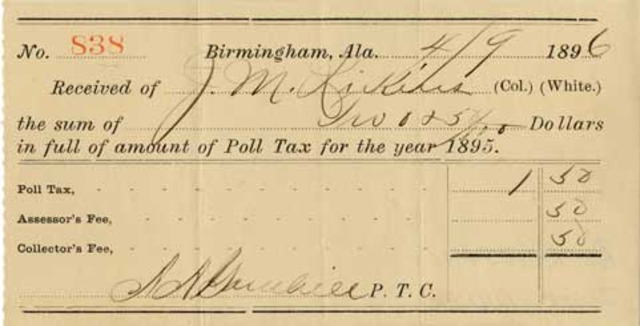 No. 838 Birmingham, Ala. 4/9 1896
Received of J. M. (Col.) (White.)
the sum of Two & 50/100 Dollars
in full of amount of Poll Tax for the year 1895.
Poll Tax, - - - - - - - - 1 50
Assessor's Fee, - - - - - - - 50
Collector's Fee, - - - - - - - 50
P. T. C.